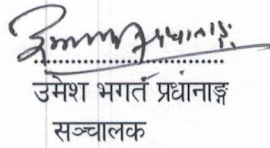 उमेश भगत प्रधानाङ्ग
सञ्चालक